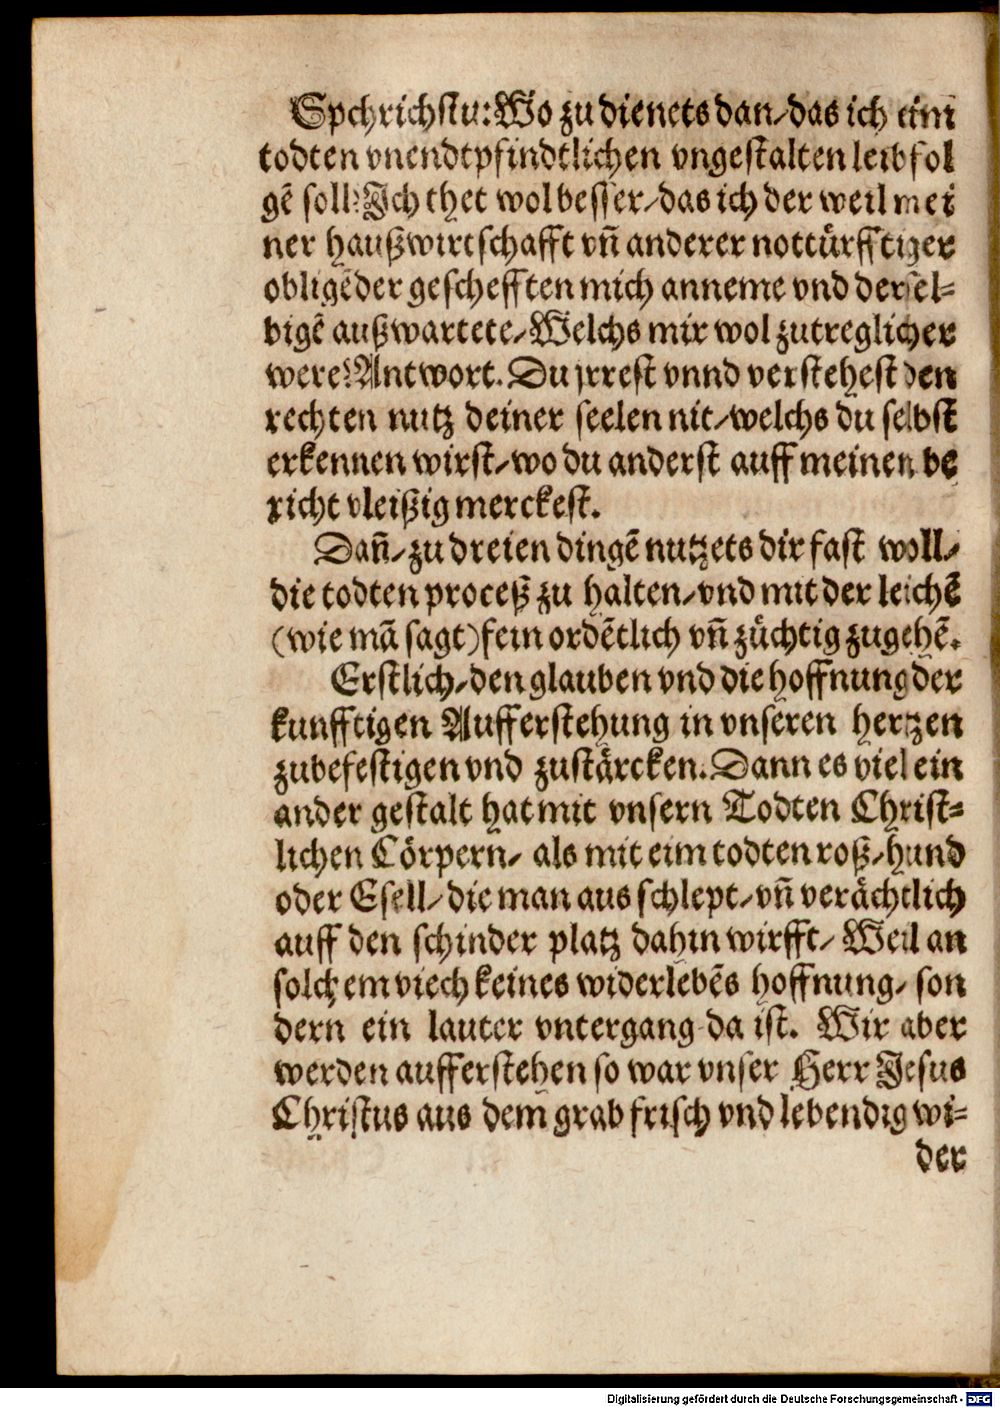 Spchrichstu: Wo zu dienets dan/ das ich eim
todten vnendtpfindtlichen vngestalten leib fol
gē soll? Ich thet wol besser/ das ich der weil mei
ner haußwirtschafft vñ anderer nottürfftiger
obligēder geschefften mich anneme vnd dersel=
bigē außwartete/ Welchs mir wol zutreglicher
were? Antwort. Du jrrest vnnd verstehest den
rechten nutz deiner seelen nit/ welchs du selbst
erkennen wirst/ wo du anderst auff meinen be
richt vleißig merckest.
Dañ/ zu dreien dingē nutzets dir fast woll/
die todten proceß zu halten/ vnd mit der leichē
(wie mā sagt) fein ordētlich vñ züchtig zugehē.
Erstlich/ den glauben vnd die hoffnung der
kunfftigen Aufferstehung in vnseren hertzen
zubefestigen vnd zustärcken. Dann es viel ein
ander gestalt hat mit vnsern Todten Christ=
lichen Cörpern/ als mit eim todten roß/ hund
oder Esell/ die man aus schlept/ vñ verächtlich
auff den schinder platz dahin wirfft/ Weil an
solchem viech keines widerlebēs hoffnung/ son
dern ein lauter vntergang da ist. Wir aber
werden aufferstehen so war vnser Herr Jesus
Christus aus dem grab frisch vnd lebendig wi=
der
Digitalisierung gefördert durch die Deutsche Forschungsgemeinschaft - DFG